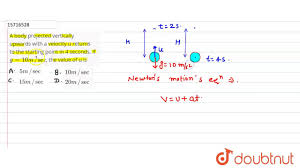 15716528
A body projected vertically
upwards with a velocity u returns
to the starting point in 4 seconds. If
g = 10m/sec, the value of u is
A: 5m/sec B: 20m/sec
C: 15m/sec D: 20m/sec
t = 2s.
H
u
H
g = 10 m/s²
t = 4s.
Newton's motion's eqⁿ ⇒.
V = u + at.
doubtnut